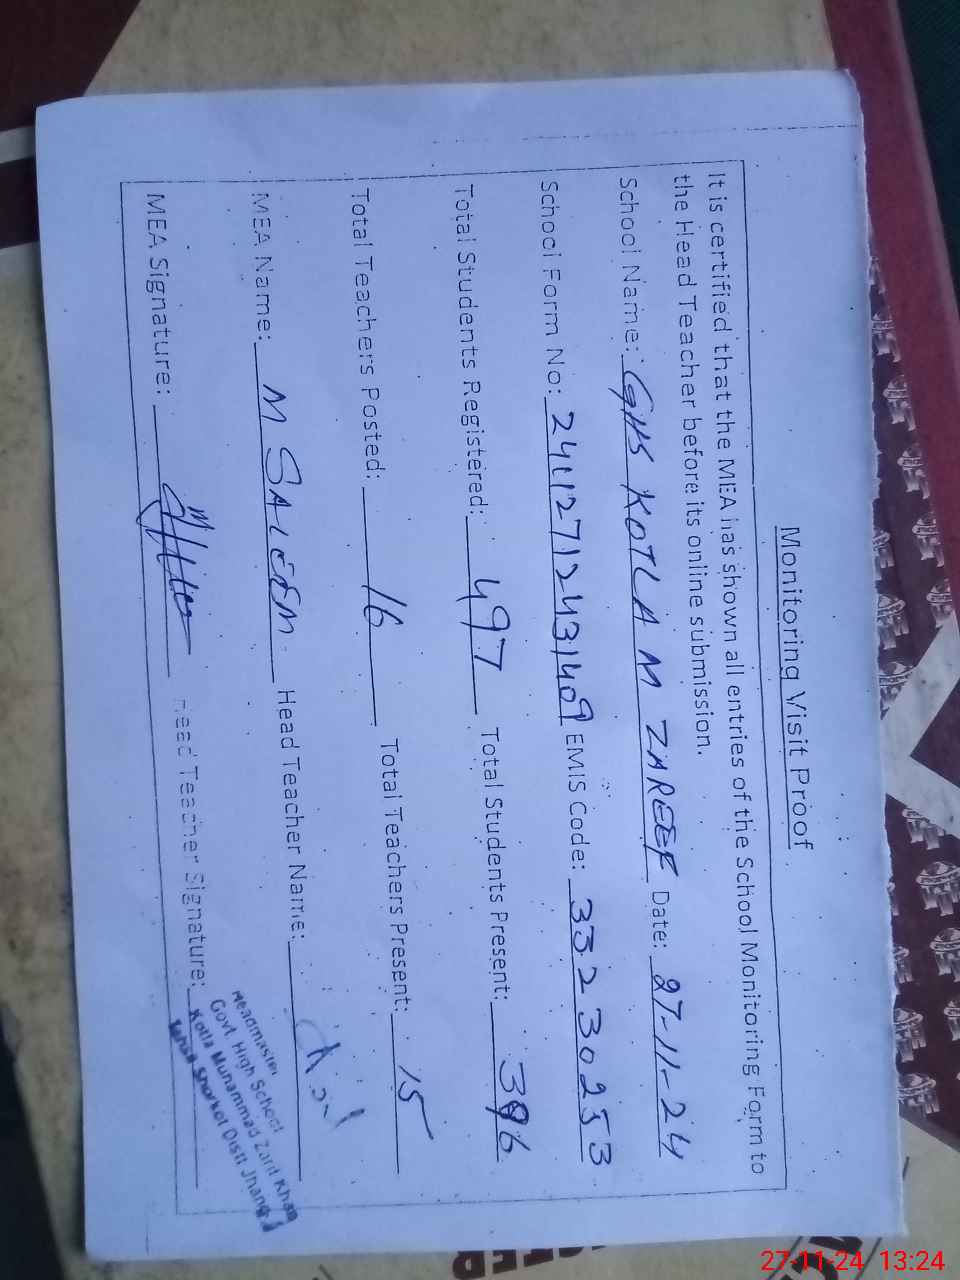 Monitoring Visit Proof
It is certified that the MEA has shown all entries of the School Monitoring Form to
the Head Teacher before its online submission.
School Name: GHS KOTLA M ZAREEF Date: 27-11-24
School Form No: 24112712431409 EMIS Code: 33230253
Total Students Registered: 497 Total Students Present: 396
Total Teachers Posted: 16 Total Teachers Present: 15
MEA Name: M SALEEM Head Teacher Name:
MEA Signature: Head Teacher Signature:
Headmaster
Govt. High School
Kotla Muhammad Zarif Khan
Shorkot Distt Jhang
27-11-24 13:24